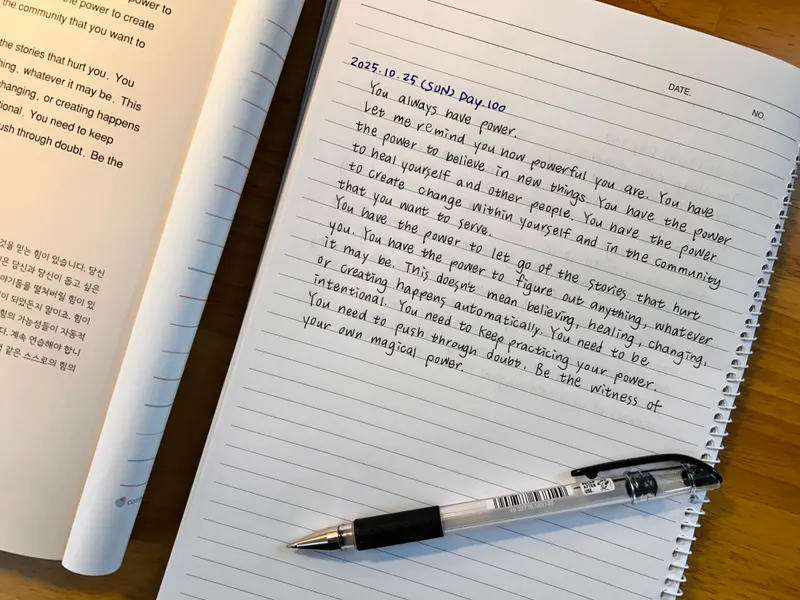 power to
the power to create
the community that you want to
the stories that hurt you. You
thing, whatever it may be. This
changing, or creating happens
tional. You need to keep
ush through doubt. Be the
것을 믿는 힘이 있습니다. 당신
은 당신과 당신이 돕고 싶은
야기들을 떨쳐버릴 힘이 있
이 되었든지 말이죠. 힘이
힘의 가능성들이 자동적
다. 계속 연습해야 합니
같은 스스로의 힘의
DATE.
NO.
2025.10.25 (SUN) Day 100
You always have power.
Let me remind you how powerful you are. You have
the power to believe in new things. You have the power
to heal yourself and other people. You have the power
to create change within yourself and in the community
that you want to serve.
You have the power to let go of the stories that hurt
you. You have the power to figure out anything, whatever
it may be. This doesn't mean believing, healing, changing,
or creating happens automatically. You need to be
intentional. You need to keep practicing your power.
You need to push through doubt. Be the witness of
your own magical power.